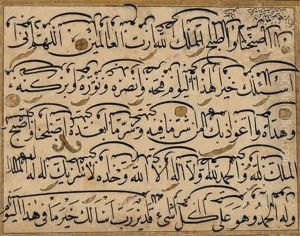 اصبحنا واصبح الملك لله رب العالمين اللهم انى
اسئلك خير هذا اليوم فتحه ونصره ونوره وبركته
وهداه واعوذ بك من شر ما فيه وشر ما بعده اصبحنا واصبح
الملك لله والحمد لله ولا اله الا الله وحده لا شريك له له الملك
وله الحمد وهو على كل شئ قدير رب اسالك خير ما فى هذا اليوم